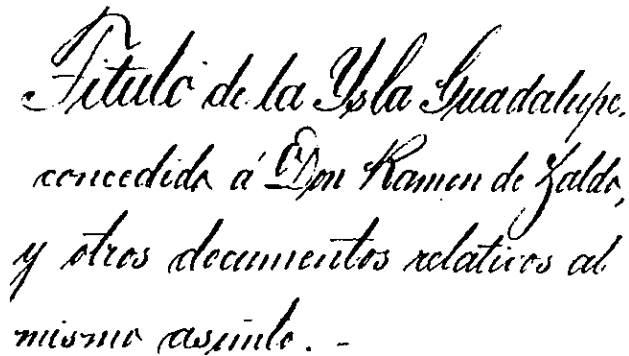 Titulo de la Ysla Guadalupe.
concedido á Don Ramon de Zaldo,
y otros documentos relativos al
mismo asunto. -